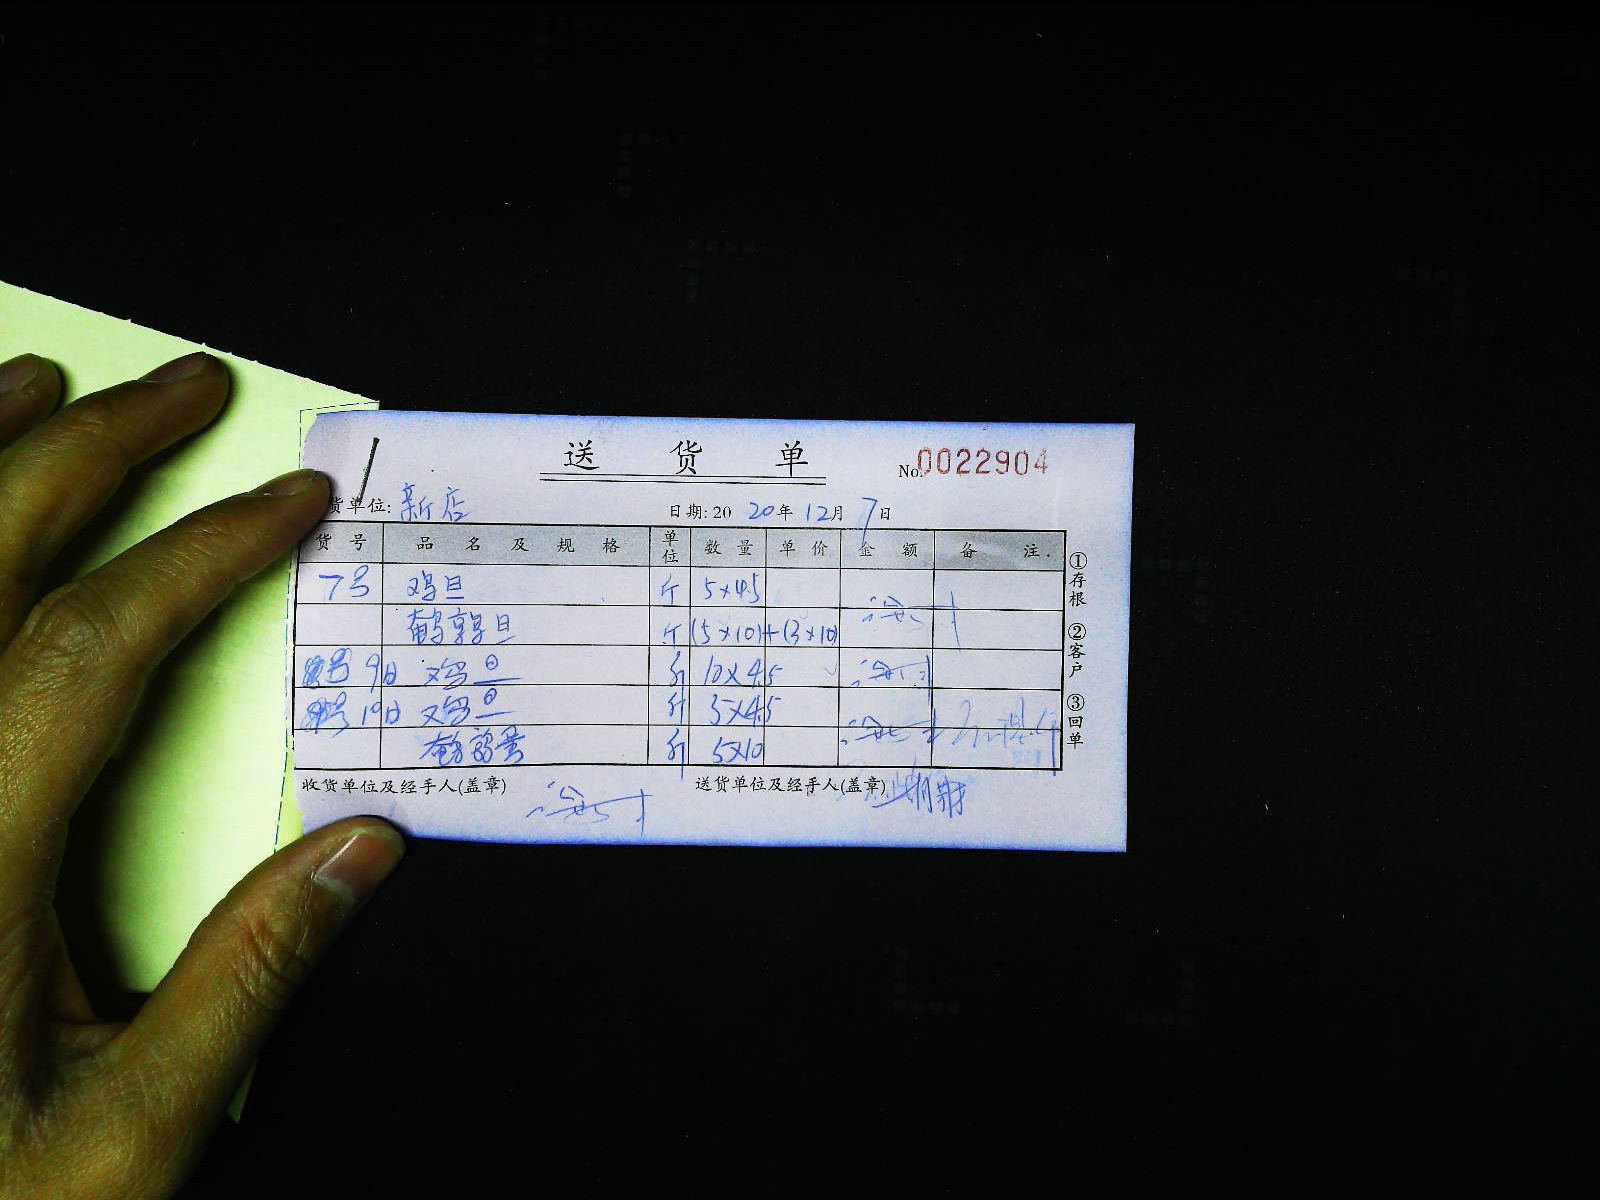 送货单
No.0022904
货单位: 新店 日期: 20 20年 12月 7日
货号 品名及规格 单位 数量 单价 金额 备注
7号 鸡旦 斤 5×45
鹌鹑旦 斤 (5×10)+(3×10)
9日 鸡旦 斤 10×45
10日 鸡旦 斤 5×45
鹌鹑蛋 斤 5×10
收货单位及经手人(盖章) 送货单位及经手人(盖章)
①存根 ②客户 ③回单